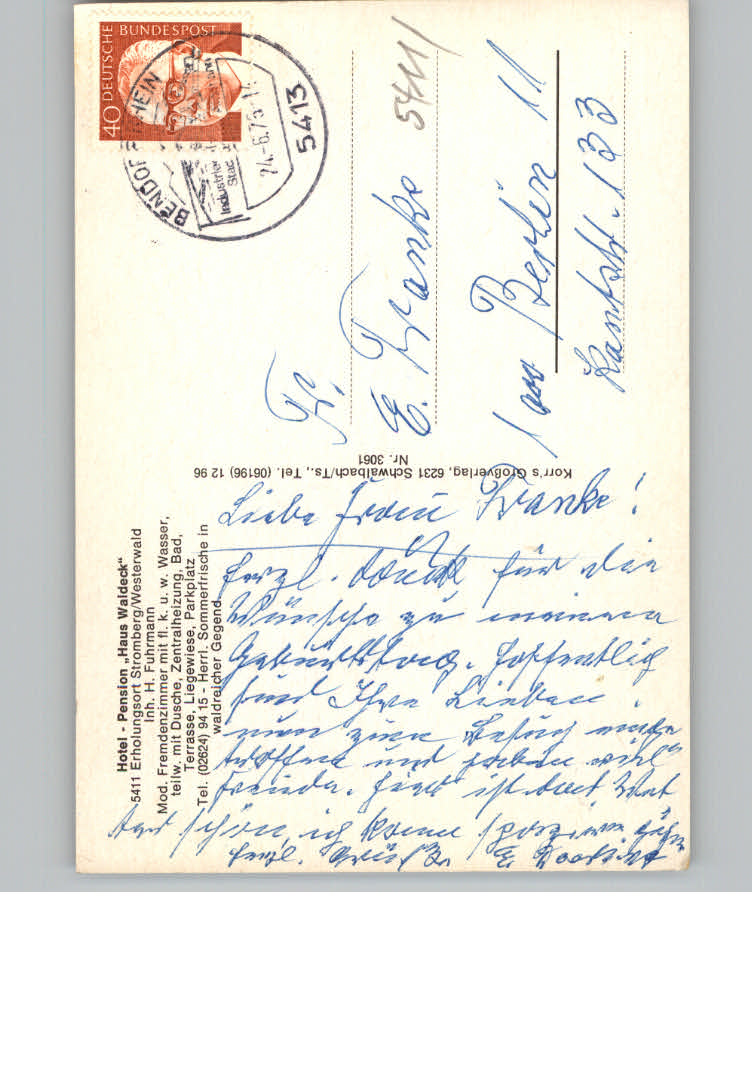 Hotel - Pension „Haus Waldeck“
5411 Erholungsort Stromberg/Westerwald
Inh. H. Fuhrmann
Mod. Fremdenzimmer mit fl. k. u. w. Wasser,
teilw. mit Dusche, Zentralheizung, Bad,
Terrasse, Liegewiese, Parkplatz
Tel. (02624) 94 15 - Herrl. Sommerfrische in
waldreicher Gegend
Liebe Frau Franke!
Herzl. Dank für die
Wünsche zu meinem
Geburtstag. Hoffentlich
sind Ihre Lieben
nun zum Besuch einge
troffen und haben viel
Freude. Hier ist das Wet
ter schön, ich kann spazieren gehen
Herzl. Grüße E.
Korr's Großverlag, 6231 Schwalbach/Ts., Tel. (06196) 12 96
Nr. 3061
DEUTSCHE BUNDESPOST
40
BENDORF RHEIN
5413
24.-6.75
Industrie
Stad
5411
Fr.
E. Franke
1000 Berlin 11
Kantstr. 133